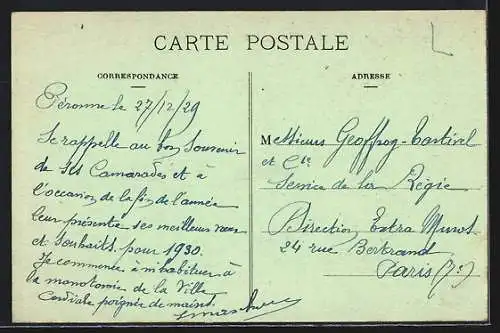 CARTE POSTALE
CORRESPONDANCE
ADRESSE
Péronne le 27/12/29
Se rappelle au bon Souvenir
de ses Camarades et à
l'occasion de la fin de l'année
leur présente ses meilleurs vœux
et Souhaits pour 1930.
Je commence à m'habituer à
la monotonie de la Ville
Cordiale poignée de mains.
Messieurs Geoffroy-
et Cie
Service de la Régie
Direction Extra Muros
24 rue Bertrand
Paris (7e)